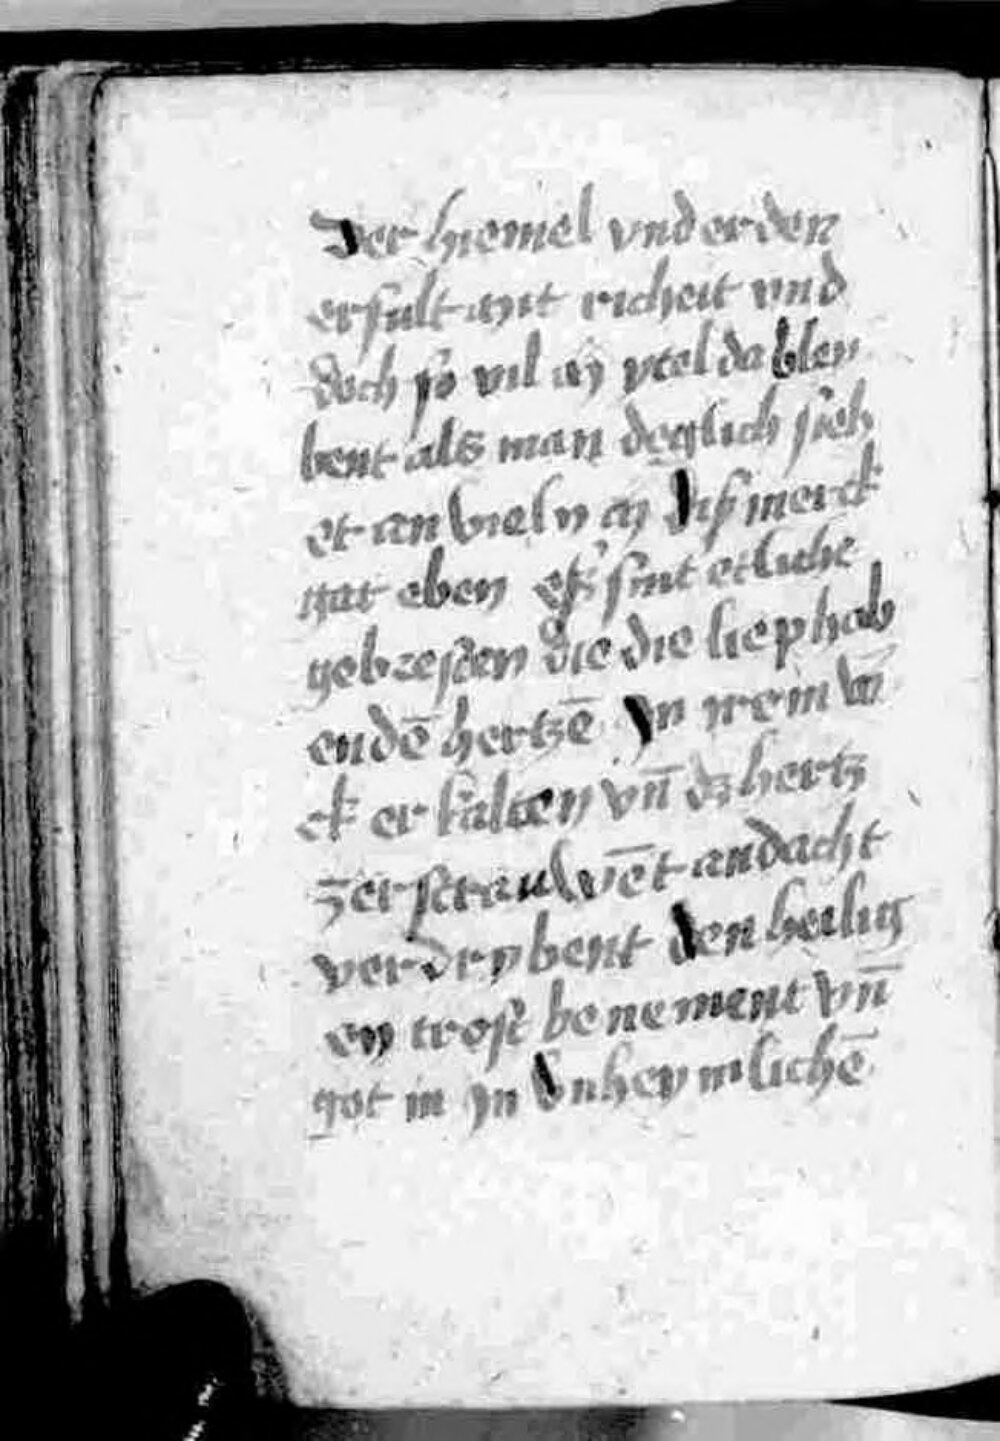 Der hiemel vnd erden
erfult mit richeit vnd
doch so vil an ytel da blen
bent als man deglich sieh
et an viel yn an Disß merck
gar eben eß sint etliche
gebresten die die liephab
endē hertzē Jn irem w
ck er kalten vn̄ dz hertz
zerstrauwēt andacht
verdrybent den heilig
en trost benement vn̄
got in yn vnheymlichē